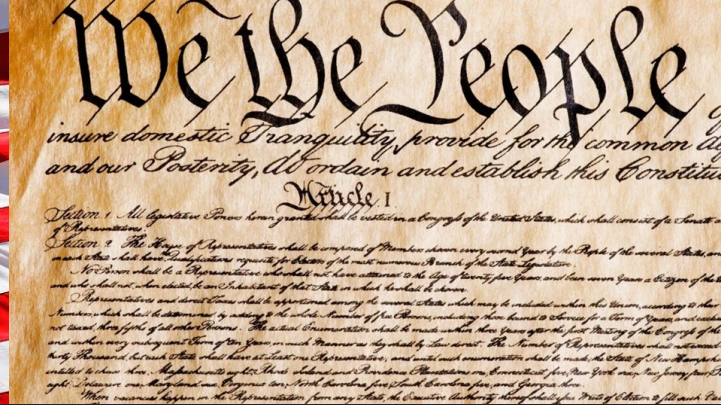 We the People
insure domestic Tranquility, provide for the common
and our Posterity, do ordain and establish this Constitu
Article. I.
Section. 1. All legislative Powers herein granted shall be vested in a Congress of the United States, which shall consist of a Senate
of Representatives.
Section. 2. The House of Representatives shall be composed of Members chosen every second Year by the People of the several States, an
in each State shall have Qualifications requisite for Electors of the most numerous Branch of the State Legislature.
No Person shall be a Representative who shall not have attained to the Age of twenty five Years, and been seven Years a Citizen of the
and who shall not, when elected, be an Inhabitant of that State in which he shall be chosen.
Representatives and direct Taxes shall be apportioned among the several States which may be included within this Union, according to the
Numbers, which shall be determined by adding to the whole Number of free Persons, including those bound to Service for a Term of Years, and
not taxed, three fifths of all other Persons. The actual Enumeration shall be made within three Years after the first Meeting of the Congress of the
and within every subsequent Term of ten Years, in such Manner as they shall by Law direct. The Number of Representatives shall not exceed
thirty Thousand, but each State shall have at Least one Representative; and until such enumeration shall be made, the State of New Hamp
entitled to chuse three, Massachusetts eight, Rhode Island and Providence Plantations one, Connecticut five, New York six, New Jersey four
eight, Delaware one, Maryland six, Virginia ten, North Carolina five, South Carolina five, and Georgia three.
When vacancies happen in the Representation from any State, the Executive Authority thereof shall issue Writs of Election to fill such